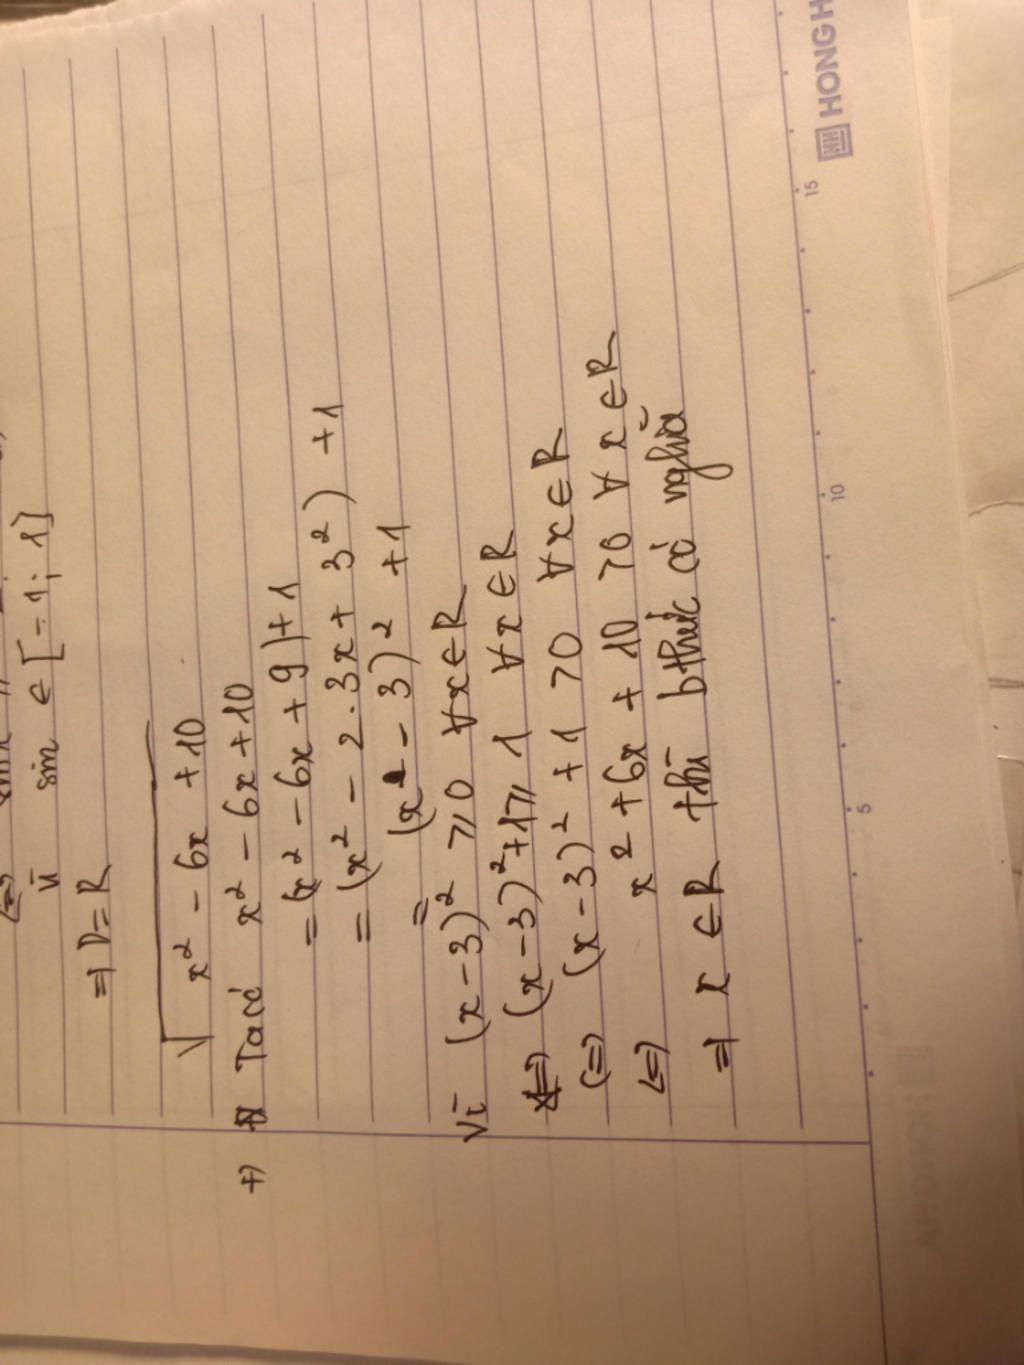 vì sin ∈ [-1; 1]
=> D = R
√x² - 6x + 10
+) Ta có x² - 6x + 10
= (x² - 6x + 9) + 1
= (x² - 2.3x + 3²) + 1
= (x - 3)² + 1
Vì (x - 3)² ≥ 0 ∀x∈R
<=> (x - 3)² + 1 ≥ 1 ∀x∈R
<=> (x - 3)² + 1 > 0 ∀x∈R
<=> x² + 6x + 10 > 0 ∀x∈R
=> x ∈ R thì bthức có nghĩa
5 10 15 HONG H